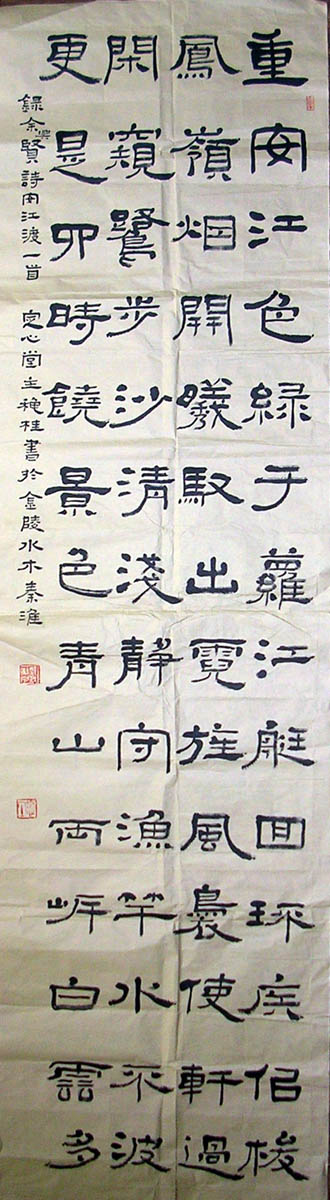 重安江色緑于蘿江艇回环疾佀梭
鳳嶺烟開曦馭出霓旌風裊使軒過
閑窺鷺步沙清淺静守漁竿水不波
更是卯時饒景色青山両岸白雲多
録余賢詩安江渡一首 定心堂主桂書於金陵水木秦淮